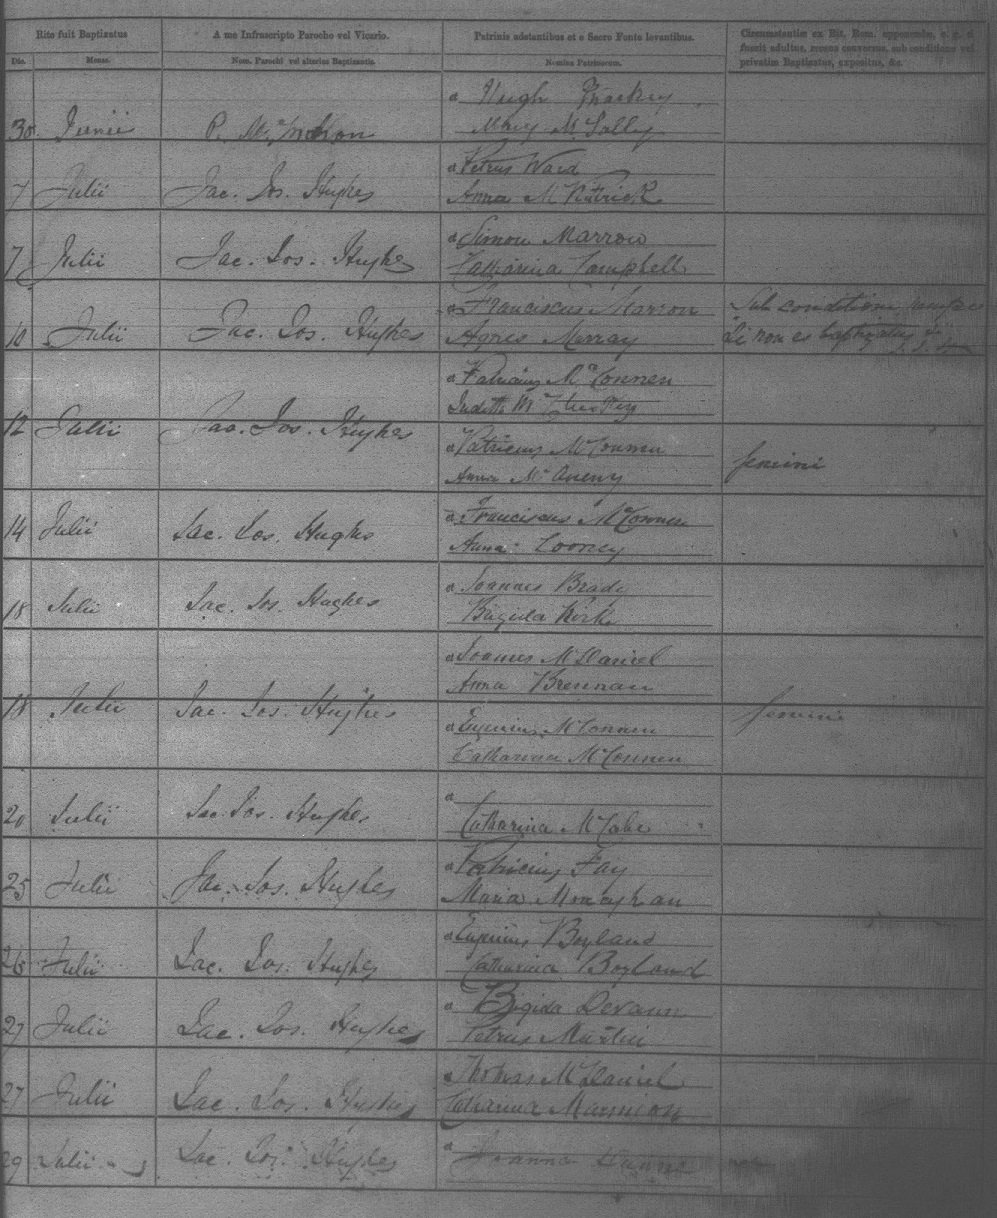 Rite fuit Baptizatus
A me Infrascripto Parocho vel Vicario.
Patrinis adstantibus et e Sacro Fonte levantibus.
Circumstantiæ ex Rit. Rom. apponendæ, e. g. si
fuerit adultus, recens conversus, sub conditione vel
privatim Baptizatus, expositus, &c.
Die. Mense.
Nom. Parochi vel alterius Baptizantis.
Nomina Patrinorum.
a Hugh
30 Junii P. Mary
a Petrus Ward
7 Julii Jac. Jos. Hughes Anna McKitrick
a Simon Marron
7 Julii Jac. Jos. Hughes Catharina Campbell
a Franciscus Marron Sub conditione
10 Julii Jac. Jos. Hughes Agnes Murray Si non es baptizatus
a Patricius McConnen
Judith
12 Julii Jac. Jos. Hughes
a Patricius McConnen
Anna McAneny gemini
a Franciscus McConnen
14 Julii Jac. Jos. Hughes Anna Cooney
a Joannes Brady
18 Julii Jac. Jos. Hughes Brigida Kirk
a Joannes McDaniel
Anna Brennan
18 Julii Jac. Jos. Hughes gemini
a Eugenius McConnen
Catharina McConnen
a
20 Julii Jac. Jos. Hughes Catharina McCabe
a Patricius Fay
25 Julii Jac. Jos. Hughes Maria Monaghan
a Eugenius Boyland
26 Julii Jac. Jos. Hughes Catharina Boyland
a Brigida Devann
27 Julii Jac. Jos. Hughes Petrus Martin
Thomas McDaniel
27 Julii Jac. Jos. Hughes Catharina Marmion
a
29 Julii Jac. Jos. Hughes Joanna